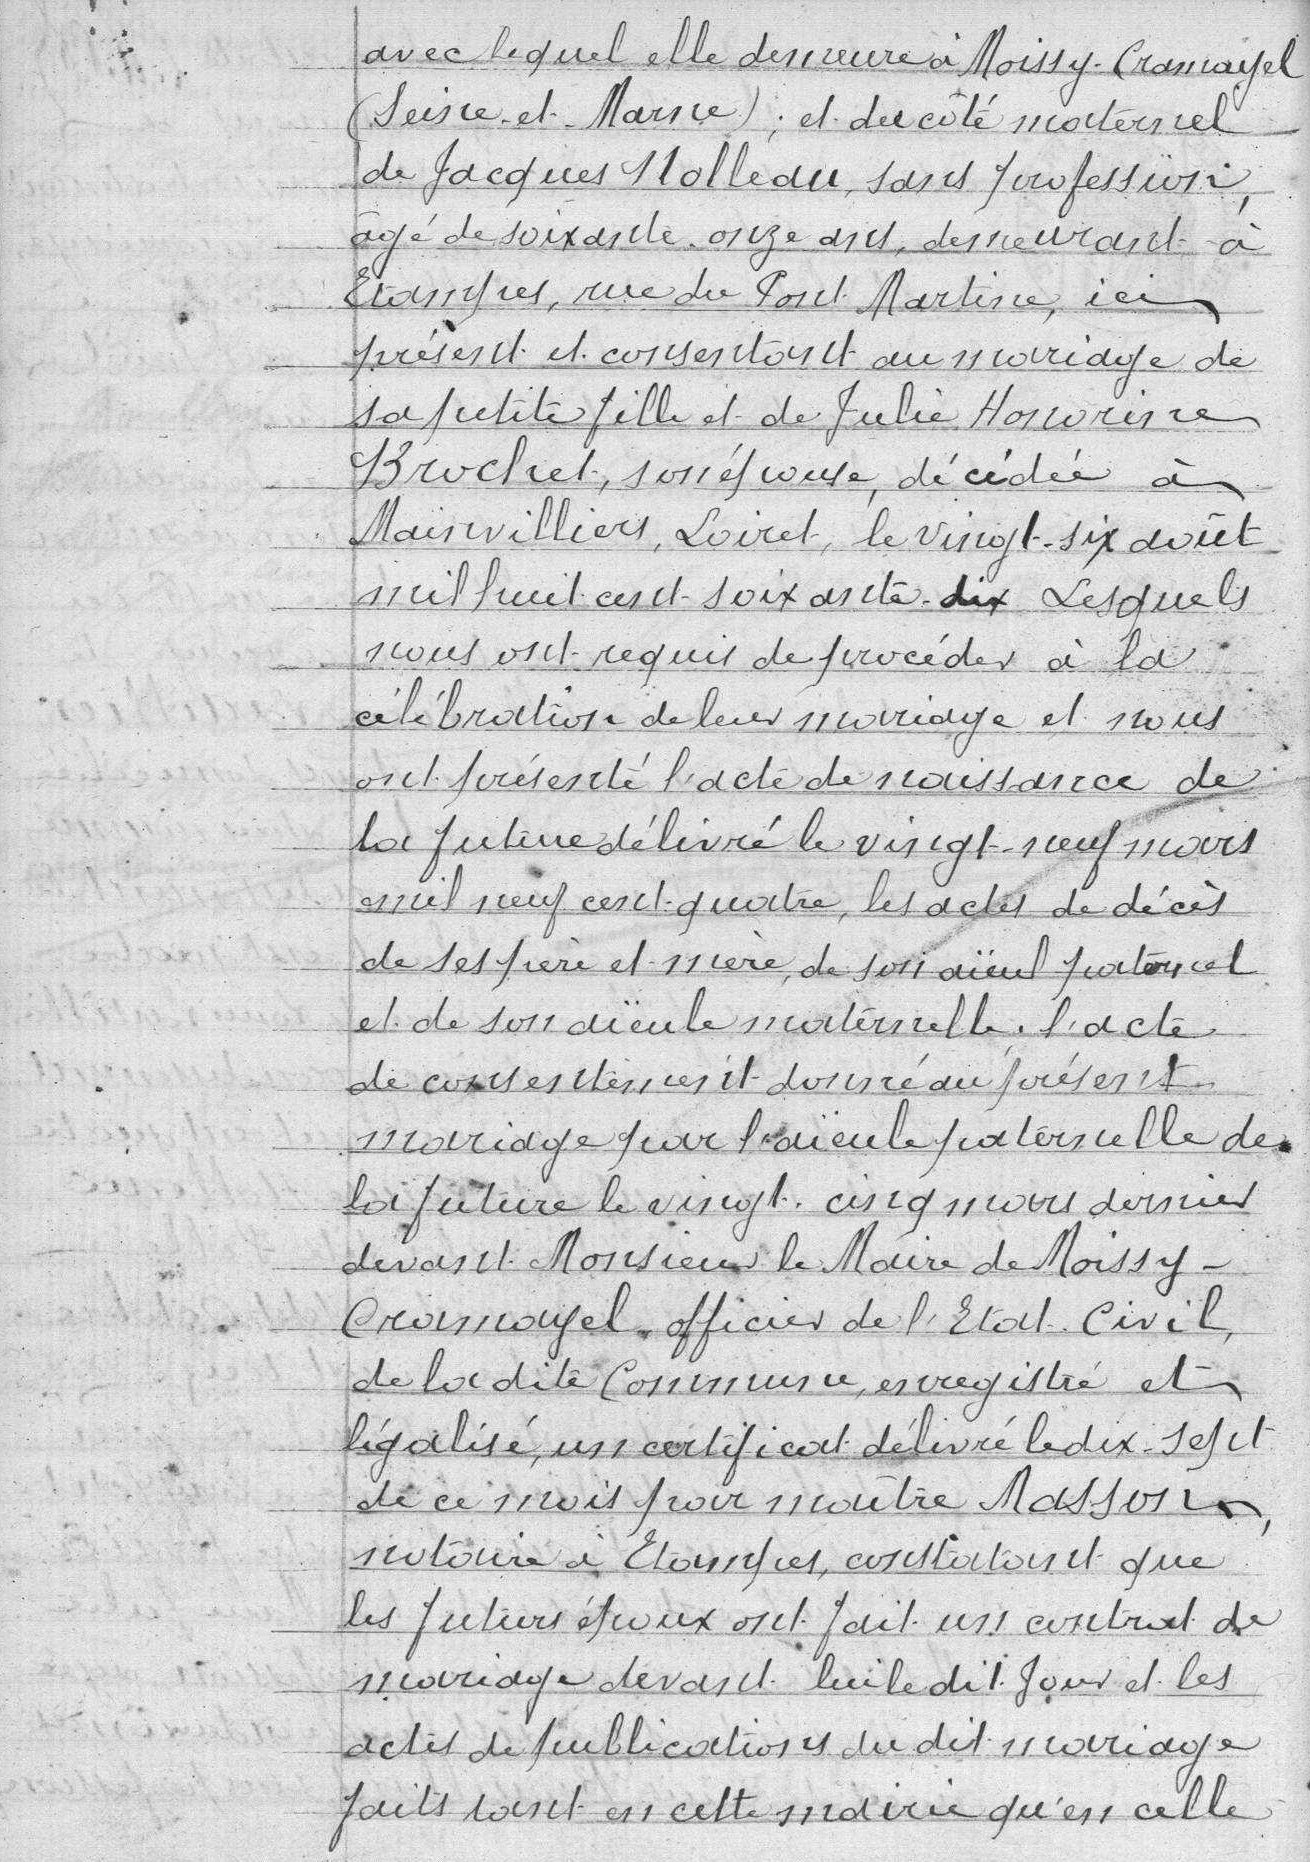 avec lequel elle demeure à Moissy-Cramayel
(Seine-et-Marne); et du côté maternel
de Jacques Nolleau, sans profession,
âgé de soixante-onze ans, demeurant à
Etampes, rue du Pont Martine, ici
présent et consentant au mariage de
sa petite fille et de Julie Honorine
Brochet, son épouse, décédée à
Mainvilliers, Loiret, le vingt-six août
mil huit cent soixante-dix Lesquels
nous ont requis de procéder à la
célébration de leur mariage et nous
ont présenté l'acte de naissance de
la future délivré le vingt-neuf mars
mil neuf cent quatre, les actes de décès
de ses père et mère, de son aïeul paternel
et de son aïeule maternelle, l'acte
de consentement donné au présent
mariage par l'aïeule paternelle de
la future le vingt-cinq mars dernier
devant Monsieur le Maire de Moissy-
Cramayel, officier de l'Etat Civil,
de la dite Commune, enregistré et
légalisé, un certificat délivré le dix-sept
de ce mois par maître Masson,
notaire à Etampes, constatant que
les futurs époux ont fait un contrat de
mariage devant lui le dit jour et les
actes de publications du dit mariage
faits tant en cette mairie qu'en celle